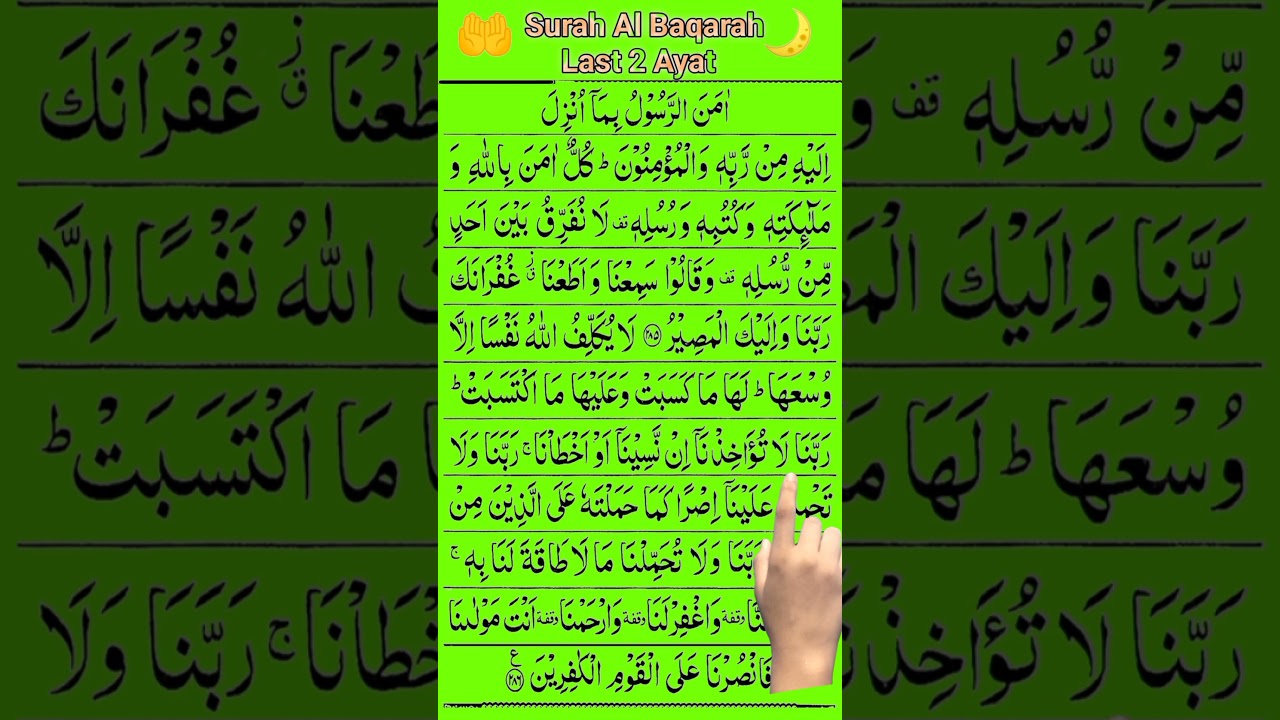 Surah Al Baqarah
Last 2 Ayat
اٰمَنَ الرَّسُوْلُ بِمَاۤ اُنْزِلَ
اِلَيْهِ مِنْ رَّبِّهٖ وَالْمُؤْمِنُوْنَ ؕ كُلٌّ اٰمَنَ بِاللّٰهِ وَ
مَلٰٓئِكَتِهٖ وَكُتُبِهٖ وَرُسُلِهٖ قف لَا نُفَرِّقُ بَيْنَ اَحَدٍ
مِّنْ رُّسُلِهٖ قف وَقَالُوْا سَمِعْنَا وَاَطَعْنَا ق ز غُفْرَانَكَ
رَبَّنَا وَاِلَيْكَ الْمَصِيْرُ ۝۲۸۵ لَا يُكَلِّفُ اللّٰهُ نَفْسًا اِلَّا
وُسْعَهَا ؕ لَهَا مَا كَسَبَتْ وَعَلَيْهَا مَا اكْتَسَبَتْ ؕ
رَبَّنَا لَا تُؤَاخِذْنَاۤ اِنْ نَّسِيْنَاۤ اَوْ اَخْطَاْنَا ۚ رَبَّنَا وَلَا
عَلَيْنَاۤ اِصْرًا كَمَا حَمَلْتَهٗ عَلَى الَّذِيْنَ مِنْ
وَلَا تُحَمِّلْنَا مَا لَا طَاقَةَ لَنَا بِهٖ ۚ
وقفة وَاغْفِرْ لَنَا وقفة وَارْحَمْنَا وقفة اَنْتَ مَوْلٰىنَا
فَانْصُرْنَا عَلَى الْقَوْمِ الْكٰفِرِيْنَ ع ۝۲۸۶